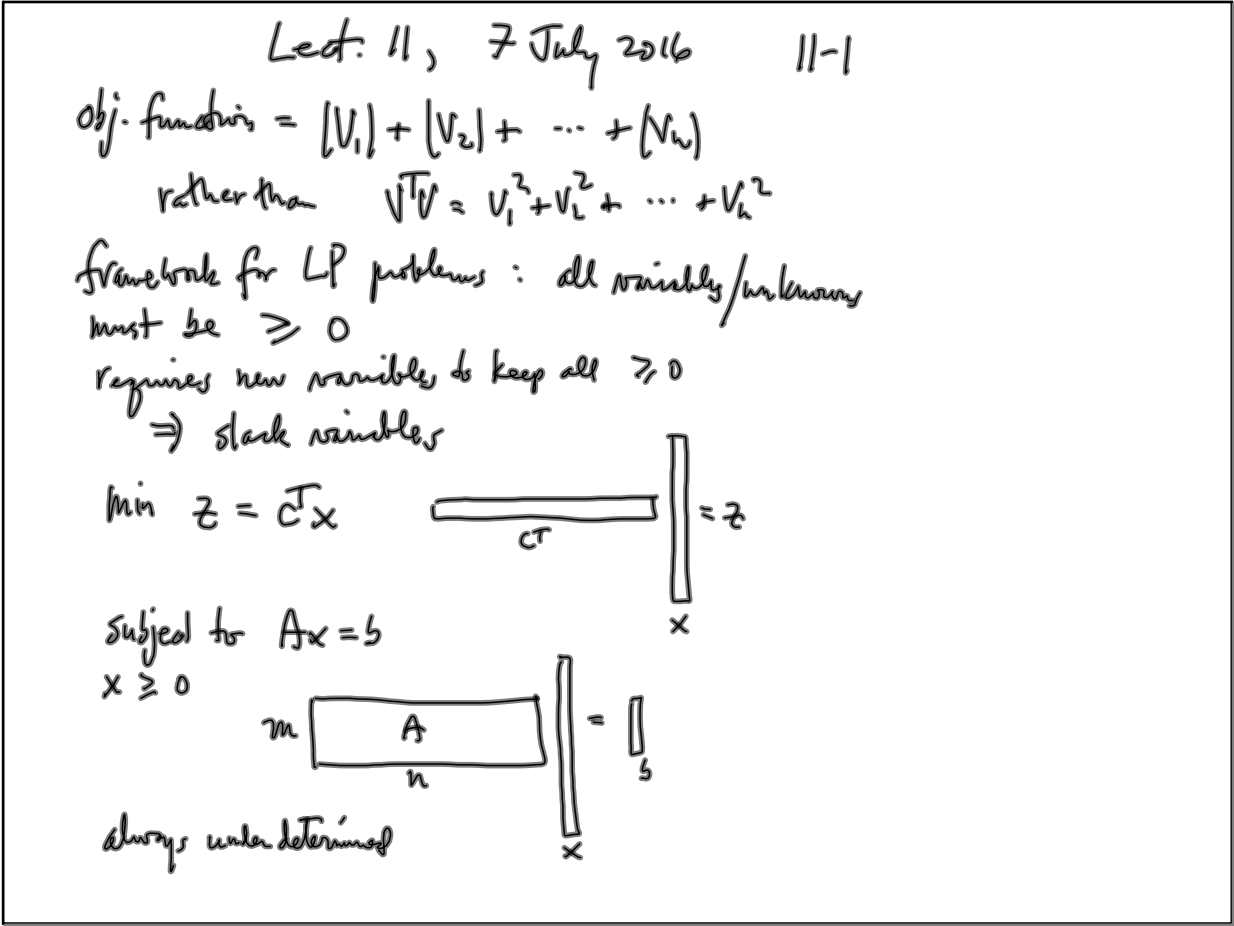 Lect. 11, 7 July 2016 11-1
obj. function = |V₁| + |V₂| + ... + |Vₙ|
rather than VᵀV = V₁² + V₂² + ... + Vₙ²
framework for LP problems : all variables/unknowns
must be ≥ 0
requires new variables to keep all ≥ 0
⇒ slack variables
min z = cᵀx
= z
cᵀ
x
subject to Ax = b
x ≥ 0
m A =
n b
x
always underdetermined